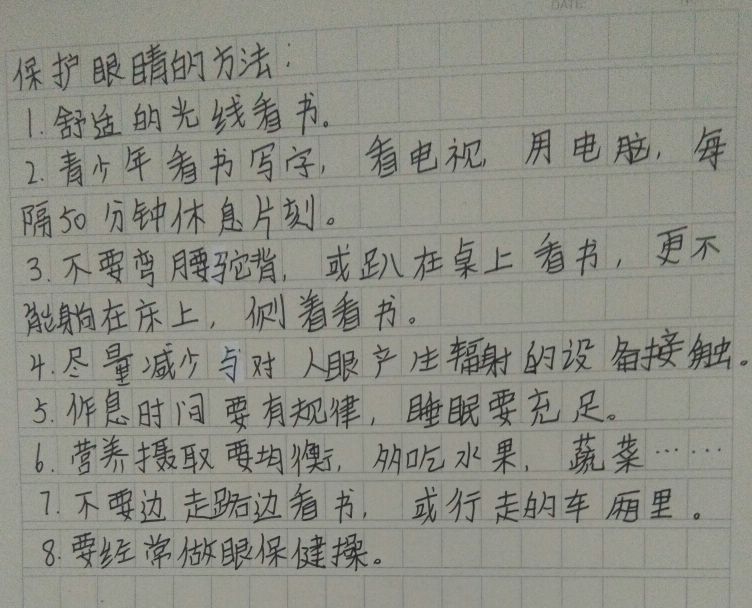 保护眼睛的方法:
1.舒适的光线看书。
2.青少年看书写字,看电视,用电脑,每
隔50分钟休息片刻。
3.不要弯腰驼背,或趴在桌上看书,更不
能躺在床上,侧着看书。
4.尽量减少与对人眼产生辐射的设备接触。
5.作息时间要有规律,睡眠要充足。
6.营养摄取要均衡,多吃水果,蔬菜……
7.不要边走路边看书,或行走的车厢里。
8.要经常做眼保健操。